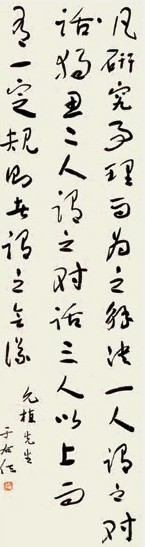 凡研究事理而為之解決一人謂之對
話獨思二人謂之對話三人以上而
有一定規則者謂之會議
允植先生
于右任